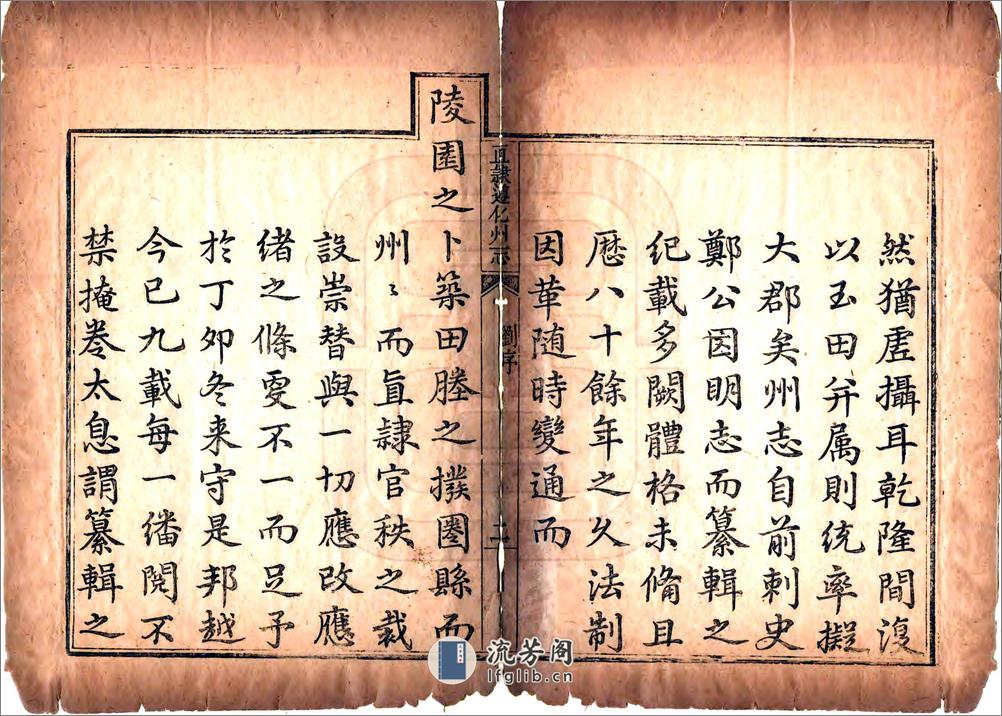 然猶虛攝耳乾隆間復
以玉田并属則统率擬
大郡矣州志自前刺史
鄭公因明志而纂輯之
紀載多闕體格未俻且
歷八十餘年之久法制
因革随時變通而
直隸遵化州志
劉序
二
陵園之卜築田塍之撥圏縣而
州〻而直隸官秩之裁
設崇替與一切應改應
緒之條更不一而足予
於丁夘冬来守是邦越
今已九載每一繙閲不
禁掩卷太息謂纂輯之
流芳阁
lfglib.cn